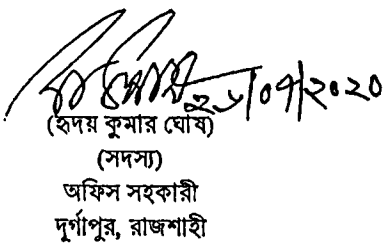 ২৮/০৭/২০২০
(হৃদয় কুমার ঘোষ)
(সদস্য)
অফিস সহকারী
দুর্গাপুর, রাজশাহী